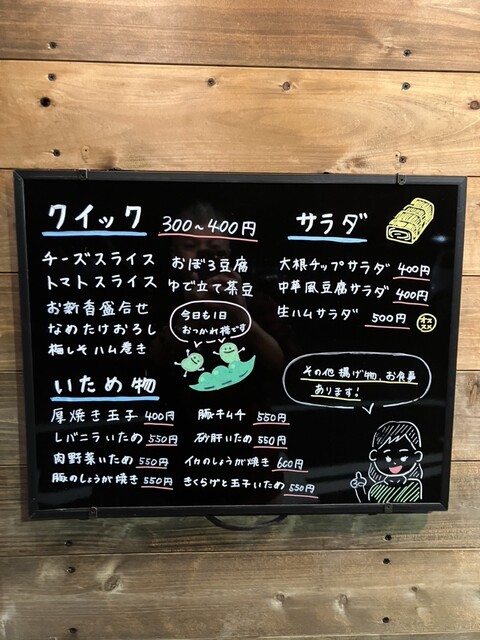 クイック 300〜400円
チーズスライス
トマトスライス
お新香盛合せ
なめたけおろし
梅しそハム巻き
おぼろ豆腐
ゆで立て茶豆
今日も1日
おつかれ様です
サラダ
大根チップサラダ 400円
中華風豆腐サラダ 400円
生ハムサラダ 500円 オススメ
その他揚げ物、お食事
あります!
いため物
厚焼き玉子 400円
レバニラいため 550円
肉野菜いため 550円
豚のしょうが焼き 550円
豚キムチ 550円
砂肝いため 550円
イカのしょうが焼き 600円
きくらげと玉子いため 550円